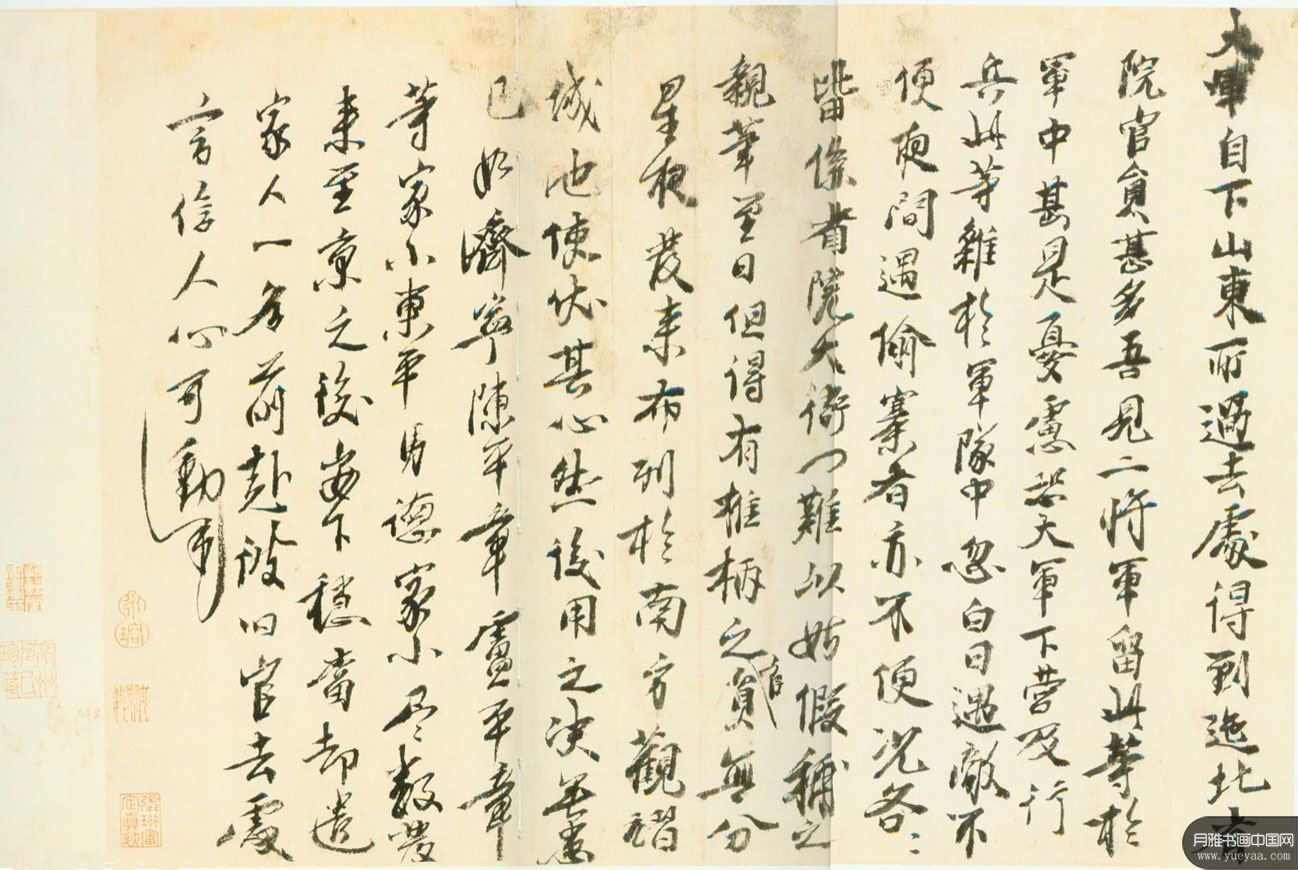 大軍自下山東所過去處得到迤北省
院官員甚多吾見二將軍留此等於
軍中甚是憂慮恐大軍下營及行
兵此等雜於軍隊中忽白日遇敵不
便夜間遇偷寨者亦不便況各〻
皆係省院大衙門難以姑假稱之
親筆至日但得有椎柄之官員無分
星夜發來布列於南方觀翫
城池使伏其心然後用之決無患
已如濟寧陳平章盧平章
等家小東平馬德家小尽數發
來至京之後安下穩當却遣
家人一名前赴彼旧官去處
言信人心可動
月雅书画中国网
www.yueyaa.com